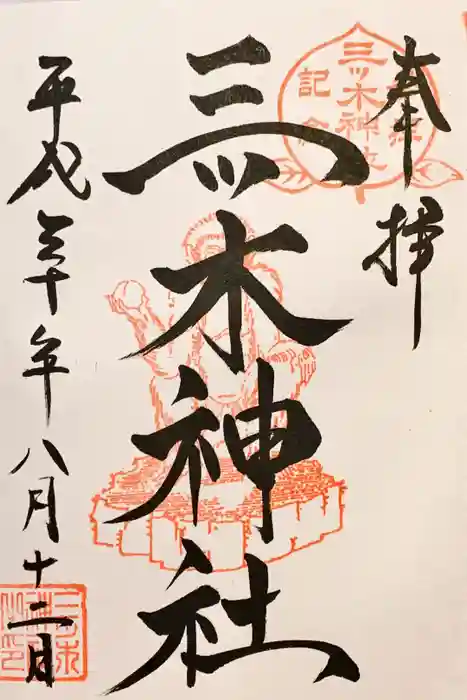 奉拝
三ツ木神社
記念
三ツ木神社
平成三十年八月十二日